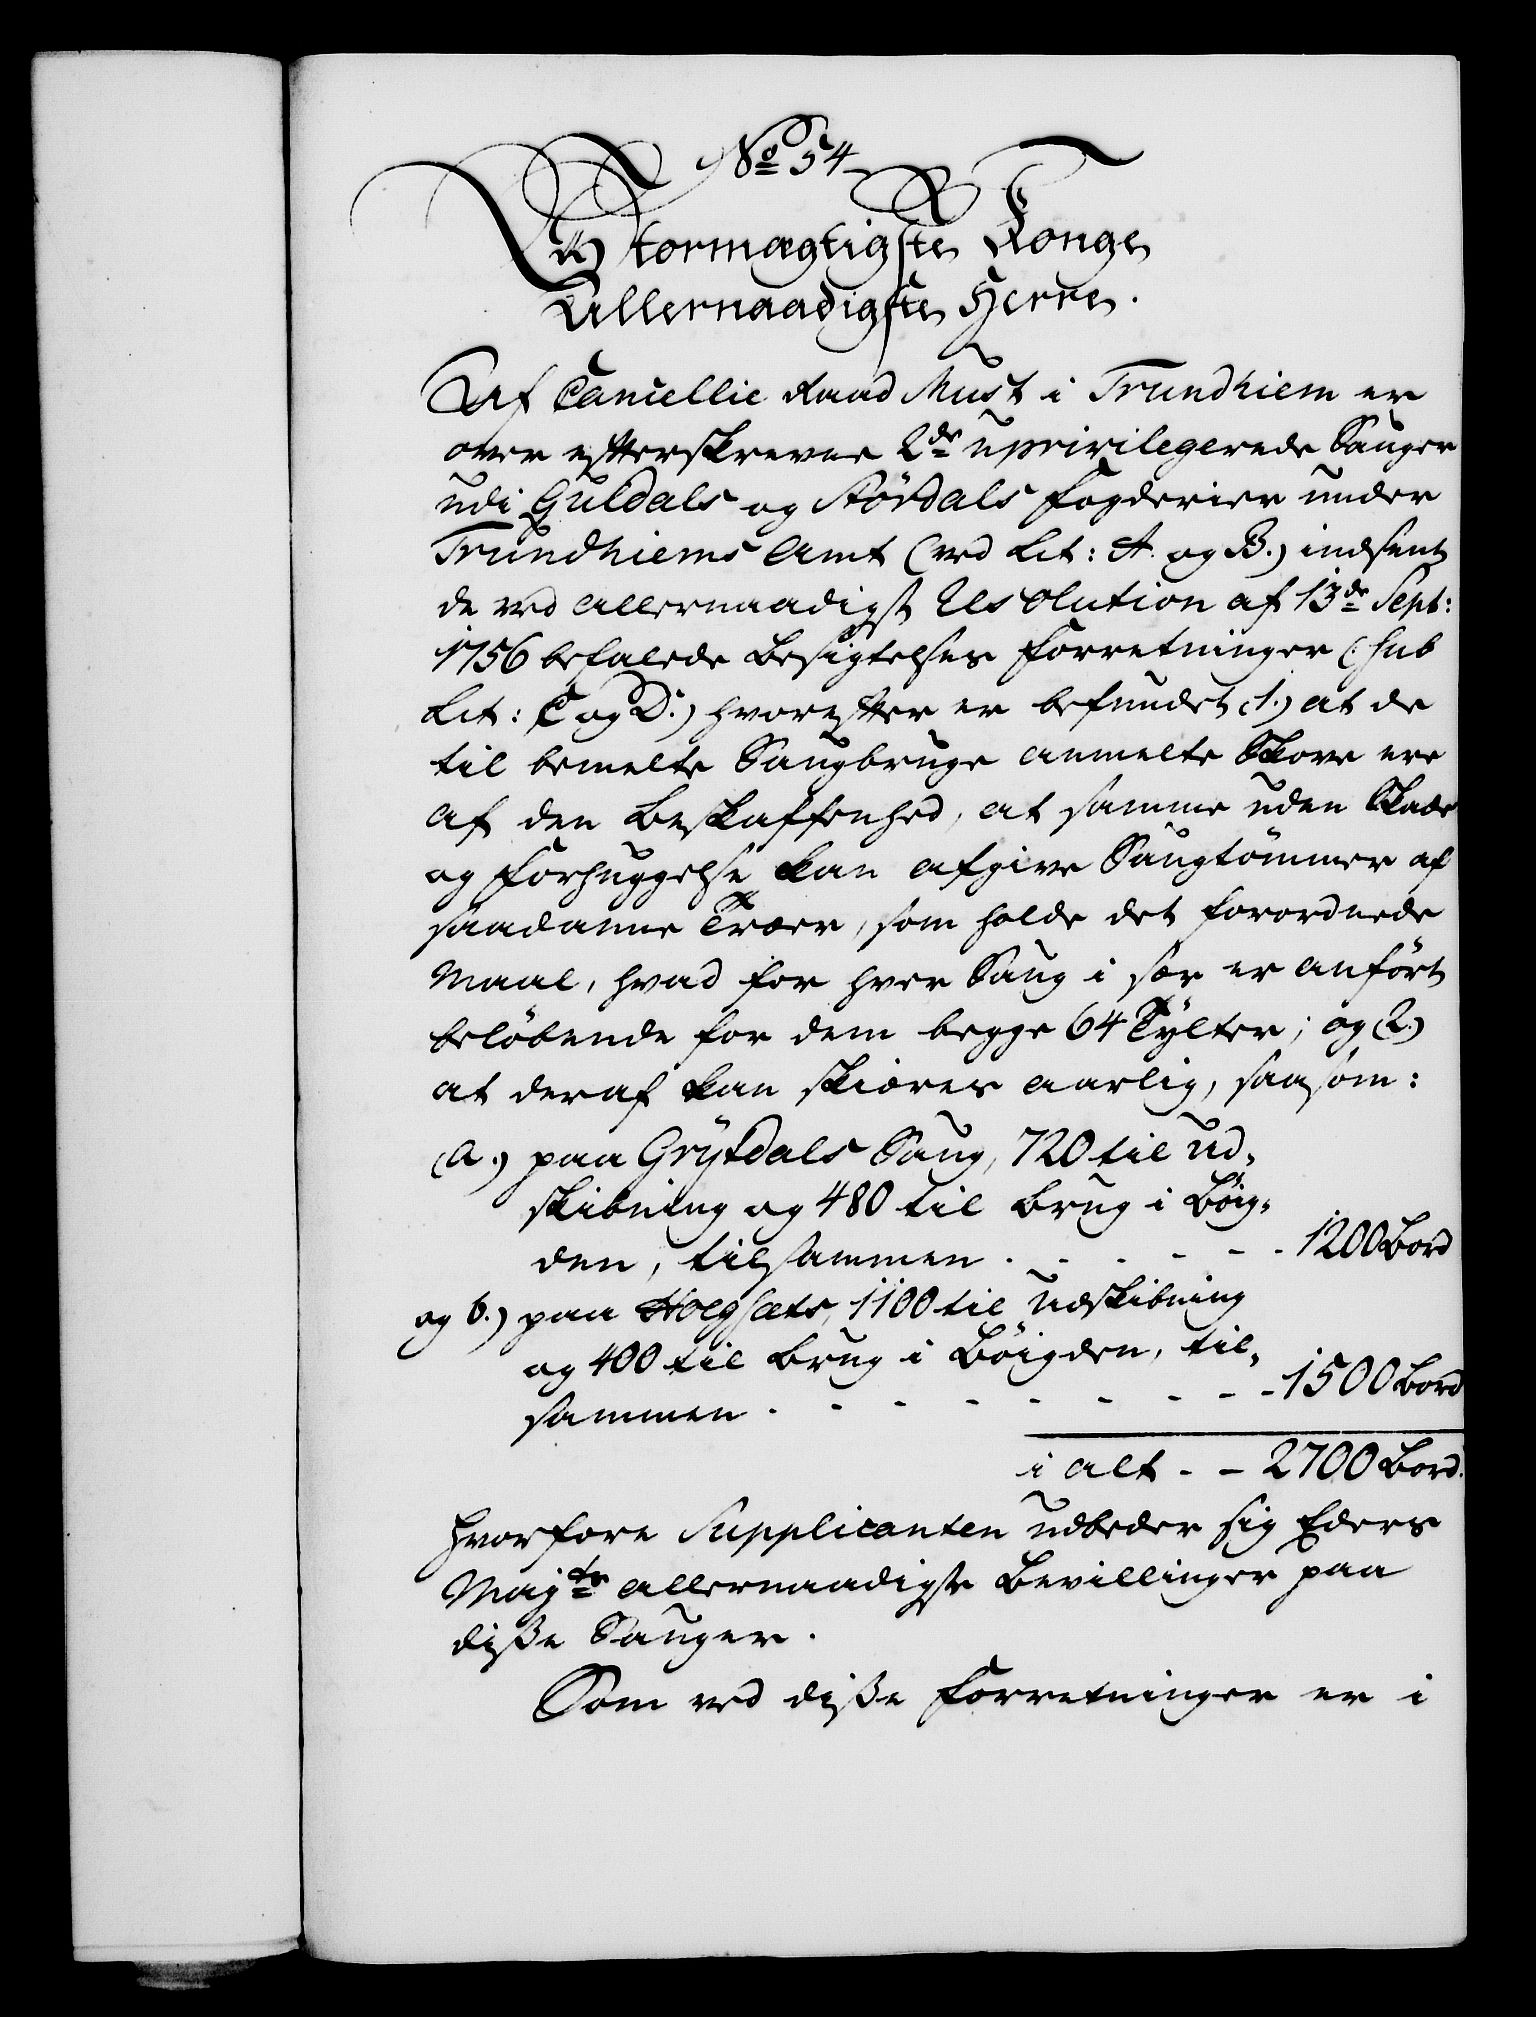 No 54
Stormægtigste Konge
Allernaadigste Herre.
Af Cancellie Raad Must i Trundhiem er
over efterskrevne 2de uprivilegerede Sauger
udi Guldals og Stördals Fogderier under
Trundhiems Amt (ved Lit: A. og B.) indsent
de ved allernaadigst Resolution af 13de Sept:
1756 befalede Besigtelses Forretninger (: sub
Lit: C og D.) hvorefter er befundet, 1.) at de
til bemelte Saugbruge anmelte Skove ere
af den Beskaffenhed, at samme uden Skade
og Forhuggelse kan afgive Saugtömmer af
saadanne Træer, som holde det forordnede
Maal, hvad for hver Saug i sær er anfört
belöbende for dem begge 64 Tylter; og 2.)
at deraf kan skiæres aarlig, saasom:
(a.) paa Grytdals Saug, 720 til Ud-
skibning og 480 til Brug i Böig-
den, tilsammen . - - - - - 1200 Bord
og b.) paa Hoegsæts, 1100 til Udskibning
og 400 til Brug i Böigden, til-
sammen . - - - - - - - - 1500 Bord
i alt - - 2700 Bord.
Hvorfore Supplicanten udbeder sig Eders
Majts allernaadigste Bevillinger paa
disse Sauger.
Som ved disse Forretninger er i